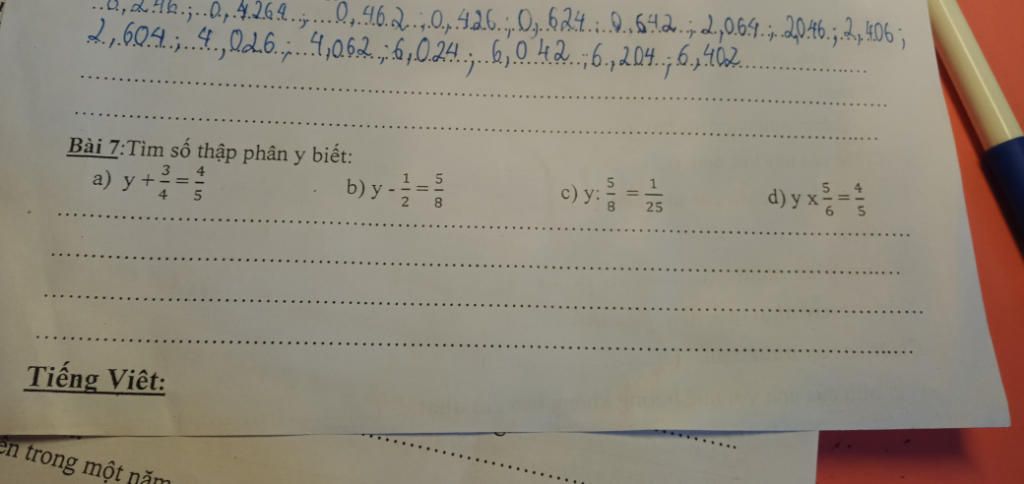 0,246.; 0,4264.; 0,462.; 0,426.; 0,624.; 0,642.; 2,064.; 2046.; 2,406;
2,604.; 4,026.; 4,062.; 6,024.; 6,042.; 6,204.; 6,402
Bài 7:Tìm số thập phân y biết:
a) y + 3/4 = 4/5 b) y - 1/2 = 5/8 c) y: 5/8 = 1/25 d) y x 5/6 = 4/5
Tiếng Viêt:
trong một năm